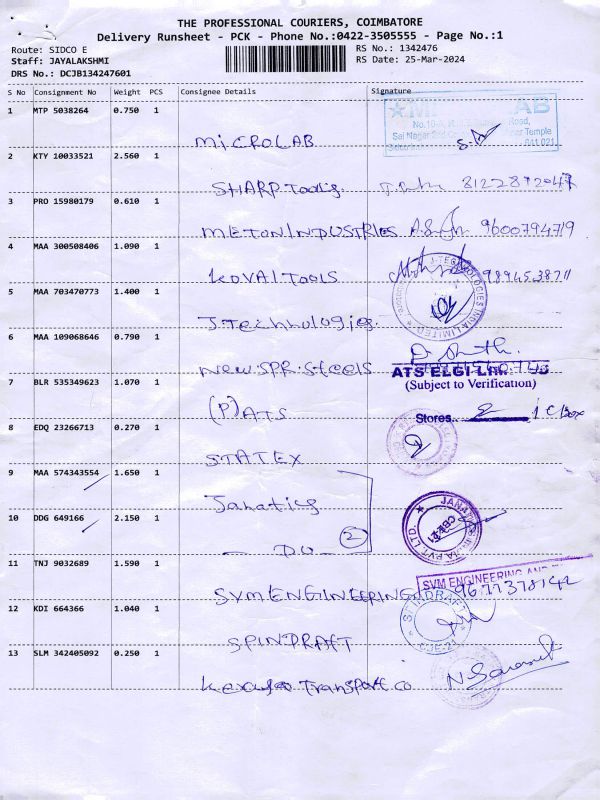 THE PROFESSIONAL COURIERS, COIMBATORE
Delivery Runsheet - PCK - Phone No.:0422-3505555 - Page No.:1
Route: SIDCO E
RS No.: 1342476
Staff: JAYALAKSHMI
RS Date: 25-Mar-2024
DRS No.: DCJB134247601
S No Consignment No Weight PCS Consignee Details Signature
1 MTP 5038264 0.750 1
MiCROLAB
2 KTY 10033521 2.560 1
SHARP Tools.
3 PRO 15980179 0.610 1
METON INDUSTRIES 9600794719
4 MAA 300508406 1.090 1
KOVAI TOOLS
5 MAA 703470773 1.400 1
J.Technologies.
6 MAA 109068646 0.790 1
New.SPR.Steels
ATS ELGI
(Subject to Verification)
7 BLR 535349623 1.070 1
(P) ATS
Stores..
8 EDQ 23266713 0.270 1
STATEX
9 MAA 574343554 1.650 1
Janatics
10 DDG 649166 2.150 1
- DO - 2
11 TNJ 9032689 1.590 1
SVM ENGINEERING
SVM ENGINEERING AND
12 KDI 664366 1.040 1
SPINDRAFT
SPINDRAFT
13 SLM 342405092 0.250 1
Transport co